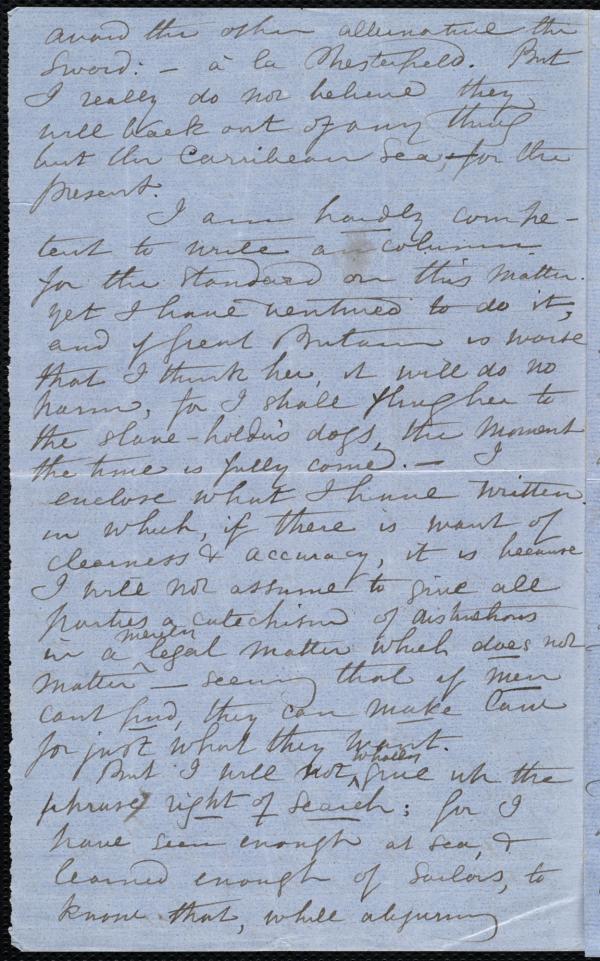 avoid the other alternative the
Sword: – à la Chesterfield. But
I really do not believe they
will back out of any thing
but the Carribean Sea, for the
present.
I am hardly compe-
tent to write a column
for the Standard on this matter.
yet I have ventured to do it,
and if Great Britain is worse
that I think her, it will do no
harm, for I shall fling her to
the slave-holder's dogs, the moment
the time is fully come. – I
enclose what I have written.
in which, if there is want of
clearness & accuracy, it is because
I will not assume to give all
parties a catechism of distinctions
in a merely legal matter which does not
matter – seeing that if men
cant find, they can make law
for just what they want.
But I will not, wholly give up the
phrase right of search; for I
have seen enough at sea, &
learned enough of Sailors, to
know that, while abjuring